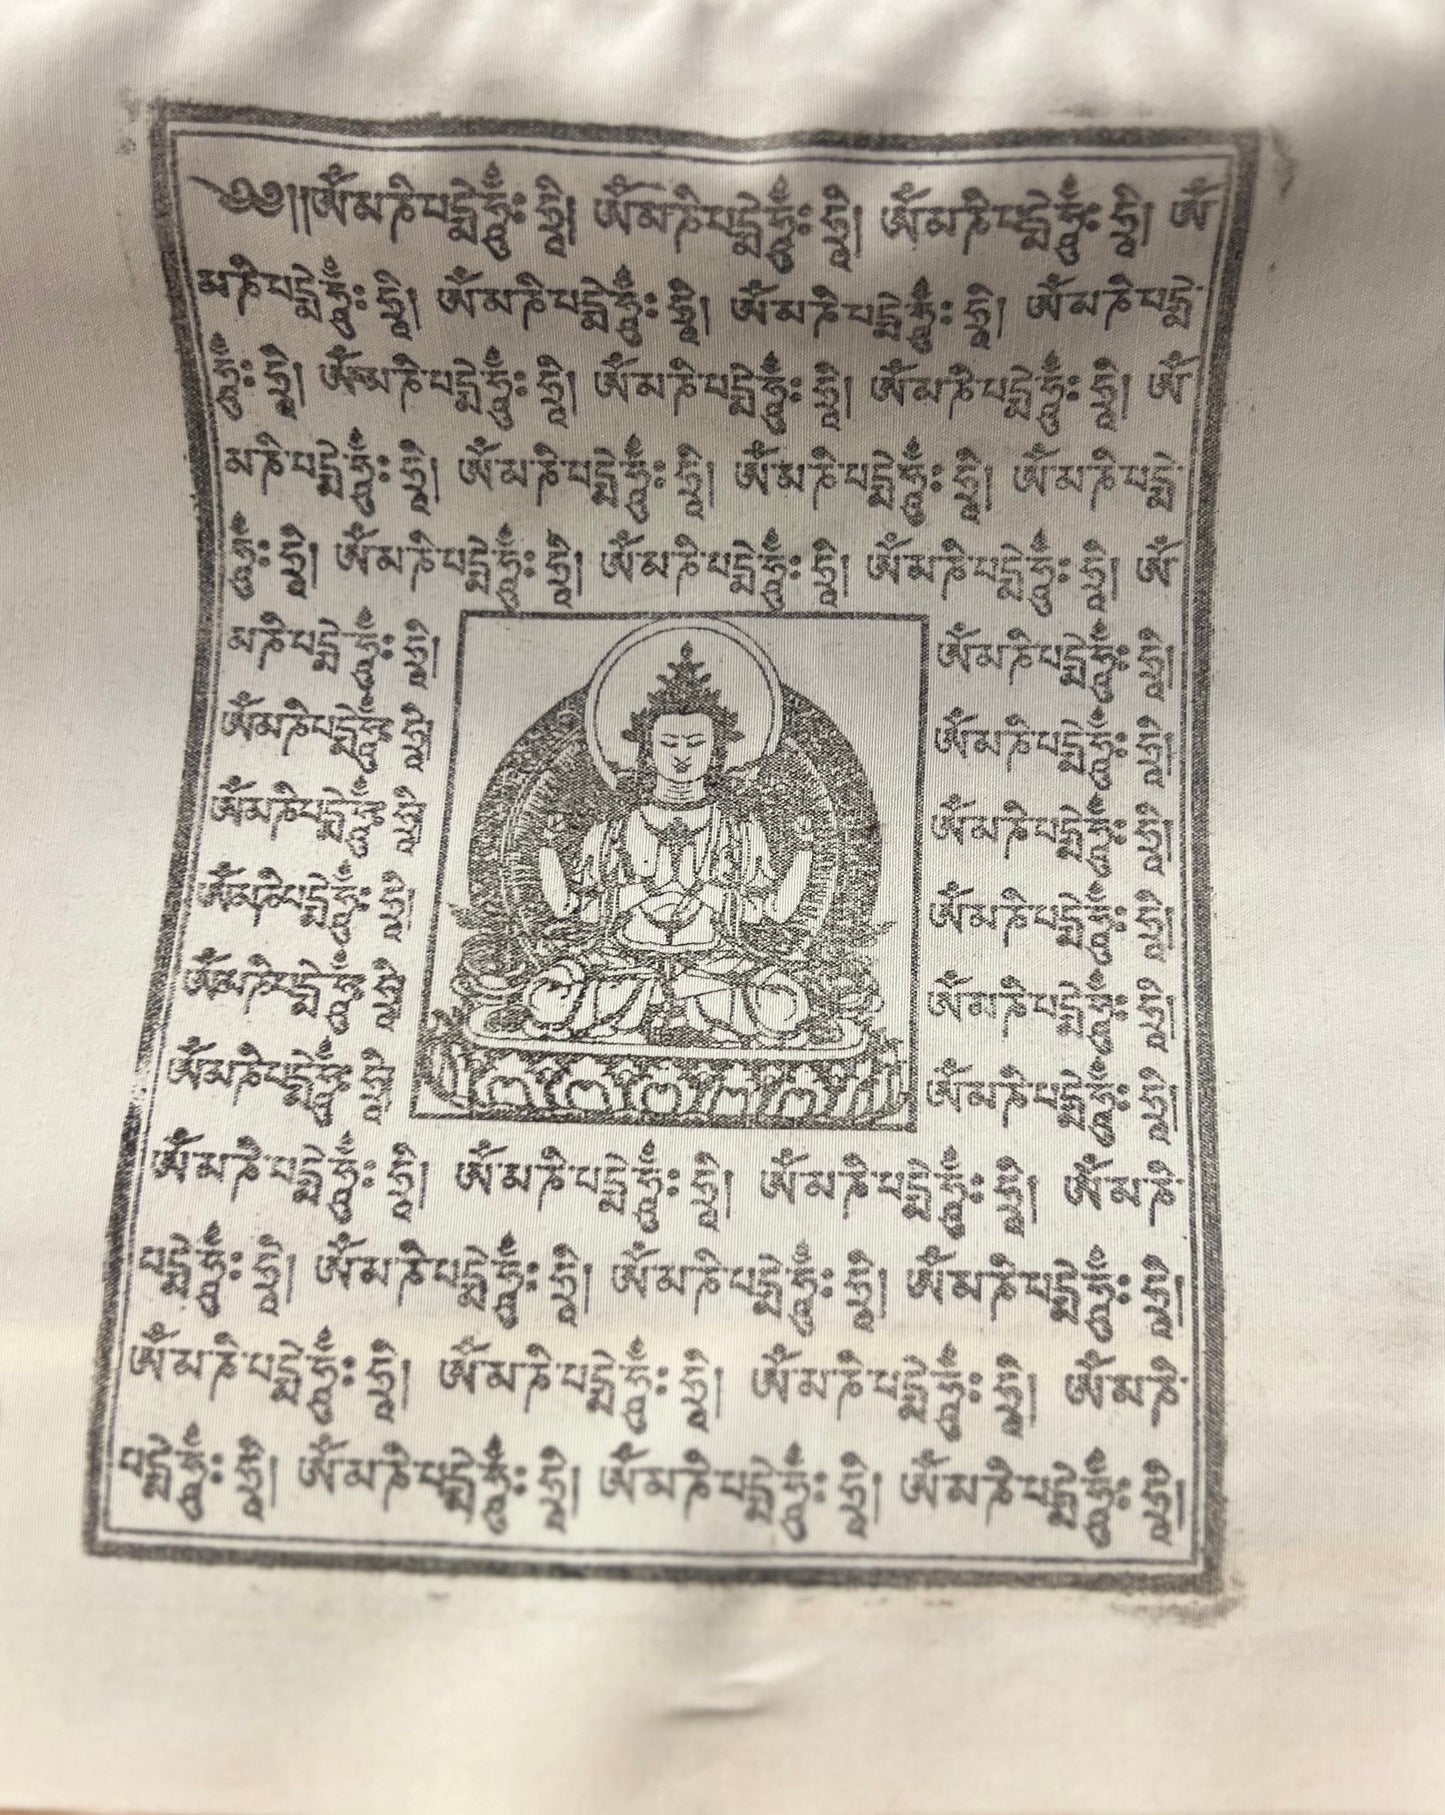 ༄༅།།ཨོཾ་མ་ཎི་པདྨེ་ཧཱུྃ༔ ཧྲཱི། ཨོཾ་མ་ཎི་པདྨེ་ཧཱུྃ༔ ཧྲཱི། ཨོཾ་མ་ཎི་པདྨེ་ཧཱུྃ༔ ཧྲཱི། ཨོཾ་
མ་ཎི་པདྨེ་ཧཱུྃ༔ ཧྲཱི། ཨོཾ་མ་ཎི་པདྨེ་ཧཱུྃ༔ ཧྲཱི། ཨོཾ་མ་ཎི་པདྨེ་ཧཱུྃ༔ ཧྲཱི། ཨོཾ་མ་ཎི་པདྨེ་
ཧཱུྃ༔ ཧྲཱི། ཨོཾ་མ་ཎི་པདྨེ་ཧཱུྃ༔ ཧྲཱི། ཨོཾ་མ་ཎི་པདྨེ་ཧཱུྃ༔ ཧྲཱི། ཨོཾ་མ་ཎི་པདྨེ་ཧཱུྃ༔ ཧྲཱི། ཨོཾ་
མ་ཎི་པདྨེ་ཧཱུྃ༔ ཧྲཱི། ཨོཾ་མ་ཎི་པདྨེ་ཧཱུྃ༔ ཧྲཱི། ཨོཾ་མ་ཎི་པདྨེ་ཧཱུྃ༔ ཧྲཱི། ཨོཾ་མ་ཎི་པདྨེ་
ཧཱུྃ༔ ཧྲཱི། ཨོཾ་མ་ཎི་པདྨེ་ཧཱུྃ༔ ཧྲཱི། ཨོཾ་མ་ཎི་པདྨེ་ཧཱུྃ༔ ཧྲཱི། ཨོཾ་མ་ཎི་པདྨེ་ཧཱུྃ༔ ཧྲཱི། ཨོཾ་
མ་ཎི་པདྨེ་ཧཱུྃ༔ ཧྲཱི། ཨོཾ་མ་ཎི་པདྨེ་ཧཱུྃ༔ ཧྲཱི།
ཨོཾ་མ་ཎི་པདྨེ་ཧཱུྃ༔ ཧྲཱི། ཨོཾ་མ་ཎི་པདྨེ་ཧཱུྃ༔ ཧྲཱི།
ཨོཾ་མ་ཎི་པདྨེ་ཧཱུྃ༔ ཧྲཱི། ཨོཾ་མ་ཎི་པདྨེ་ཧཱུྃ༔ ཧྲཱི།
ཨོཾ་མ་ཎི་པདྨེ་ཧཱུྃ༔ ཧྲཱི། ཨོཾ་མ་ཎི་པདྨེ་ཧཱུྃ༔ ཧྲཱི།
ཨོཾ་མ་ཎི་པདྨེ་ཧཱུྃ༔ ཧྲཱི། ཨོཾ་མ་ཎི་པདྨེ་ཧཱུྃ༔ ཧྲཱི།
ཨོཾ་མ་ཎི་པདྨེ་ཧཱུྃ༔ ཧྲཱི། ཨོཾ་མ་ཎི་པདྨེ་ཧཱུྃ༔ ཧྲཱི།
ཨོཾ་མ་ཎི་པདྨེ་ཧཱུྃ༔ ཧྲཱི། ཨོཾ་མ་ཎི་པདྨེ་ཧཱུྃ༔ ཧྲཱི། ཨོཾ་མ་ཎི་པདྨེ་ཧཱུྃ༔ ཧྲཱི། ཨོཾ་མ་ཎི་
པདྨེ་ཧཱུྃ༔ ཧྲཱི། ཨོཾ་མ་ཎི་པདྨེ་ཧཱུྃ༔ ཧྲཱི། ཨོཾ་མ་ཎི་པདྨེ་ཧཱུྃ༔ ཧྲཱི། ཨོཾ་མ་ཎི་པདྨེ་ཧཱུྃ༔ ཧྲཱི།
ཨོཾ་མ་ཎི་པདྨེ་ཧཱུྃ༔ ཧྲཱི། ཨོཾ་མ་ཎི་པདྨེ་ཧཱུྃ༔ ཧྲཱི། ཨོཾ་མ་ཎི་པདྨེ་ཧཱུྃ༔ ཧྲཱི། ཨོཾ་མ་ཎི་
པདྨེ་ཧཱུྃ༔ ཧྲཱི། ཨོཾ་མ་ཎི་པདྨེ་ཧཱུྃ༔ ཧྲཱི། ཨོཾ་མ་ཎི་པདྨེ་ཧཱུྃ༔ ཧྲཱི། ཨོཾ་མ་ཎི་པདྨེ་ཧཱུྃ༔ ཧྲཱི།